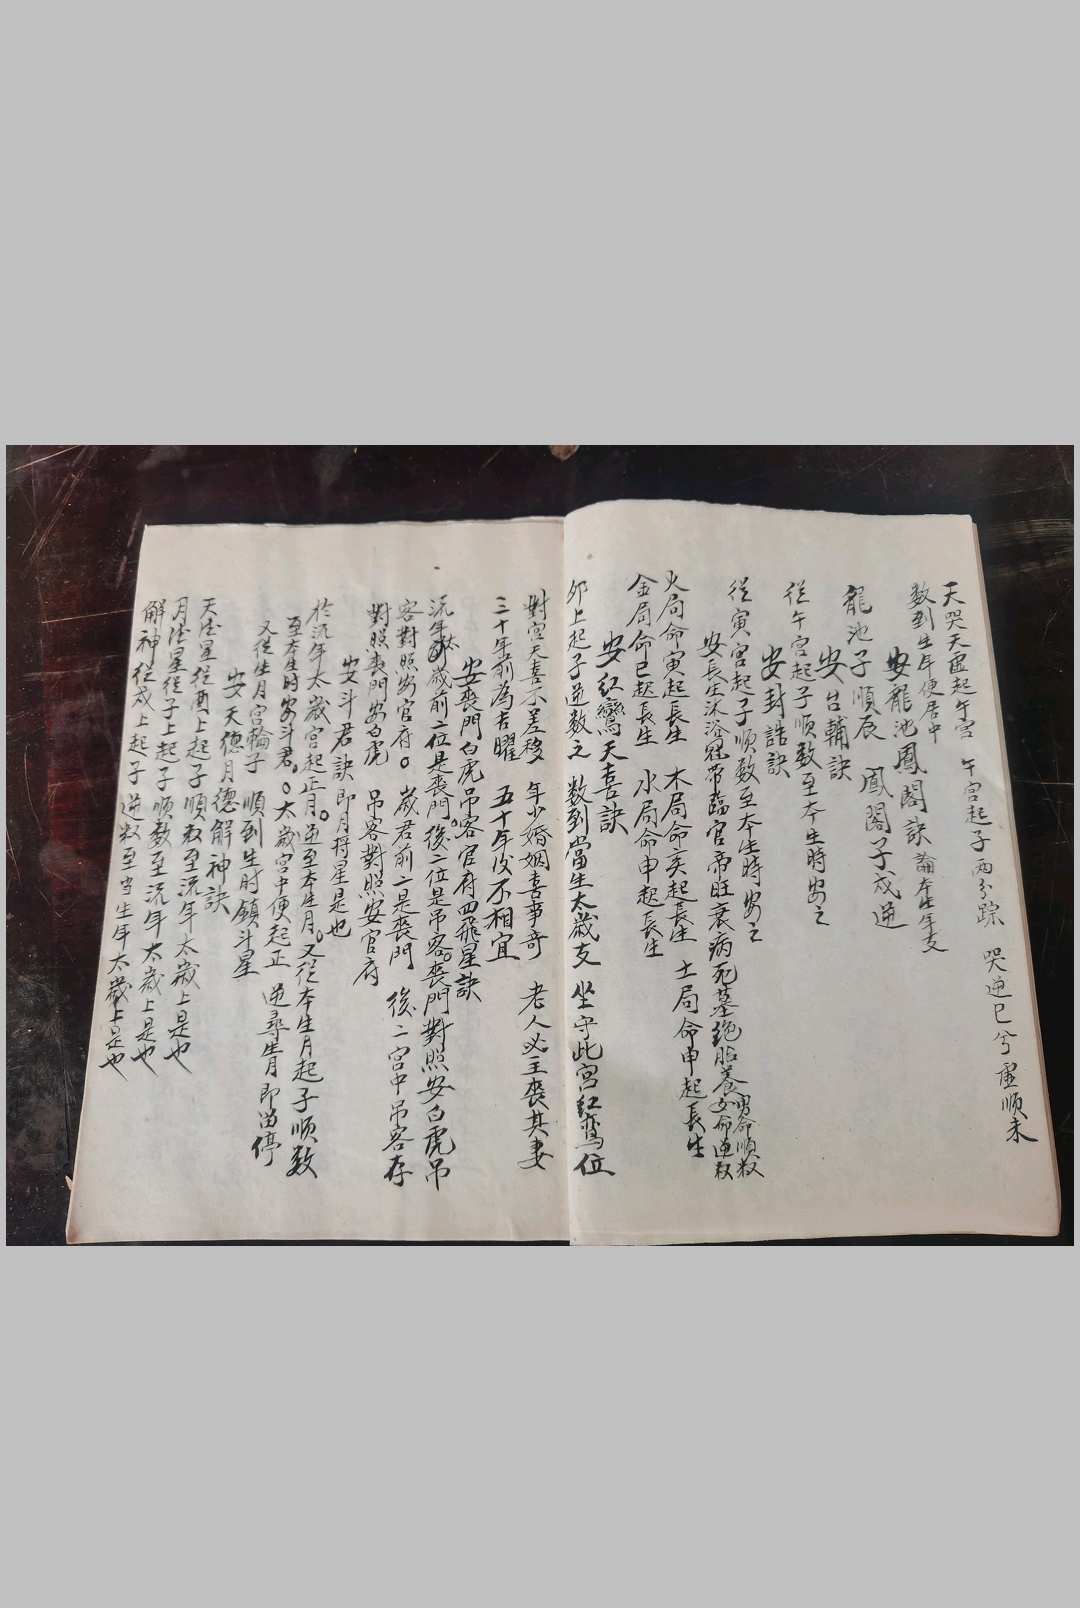 天哭天虛起午宮　午宮起子兩分踪　哭逆巳兮虛順未
数到生年便居中
安龍池鳳閣訣論本生年支
龍池子順辰　鳳閣子戍逆
安台輔訣
從午宮起子順数至本生時安之
安封誥訣
從寅宮起子順数至本生時安之
安長生沐浴冠帶臨官帝旺衰病死墓绝胎養男命順数女命逆数
火局命寅起長生　木局命亥起長生　土局命申起長生
金局命巳起長生　水局命申起長生
安紅鸞天喜訣
卯上起子逆数之　数到當生太歲支　坐守此宮紅鸾位
對宮天喜不差移　年少婚姻喜事奇　老人必主喪其妻
三十年前為吉曜　五十年後不相宜
安喪門白虎吊客官府四飛星訣
流年太歲前二位是喪門。後二位是吊客。喪門對照安白虎吊
客對照安官府。　歲君前二是喪門　後二宮中吊客存
對照喪門安白虎　吊客對照安官府
安斗君訣即月将星是也
於流年太歲宮起正月。逆至本生月。又從本生月起子順数
至本生時安斗君。。太歲宮中便起正　逆尋生月即畄停
又從生月宮輪子　順到生时鎮斗星
安天德月德解神訣
天德星從酉上起子順数至流年太歲上是也
月德星從子上起子順数至流年太歲上是也
解神從戍上起子逆数至当生年太歲上是也